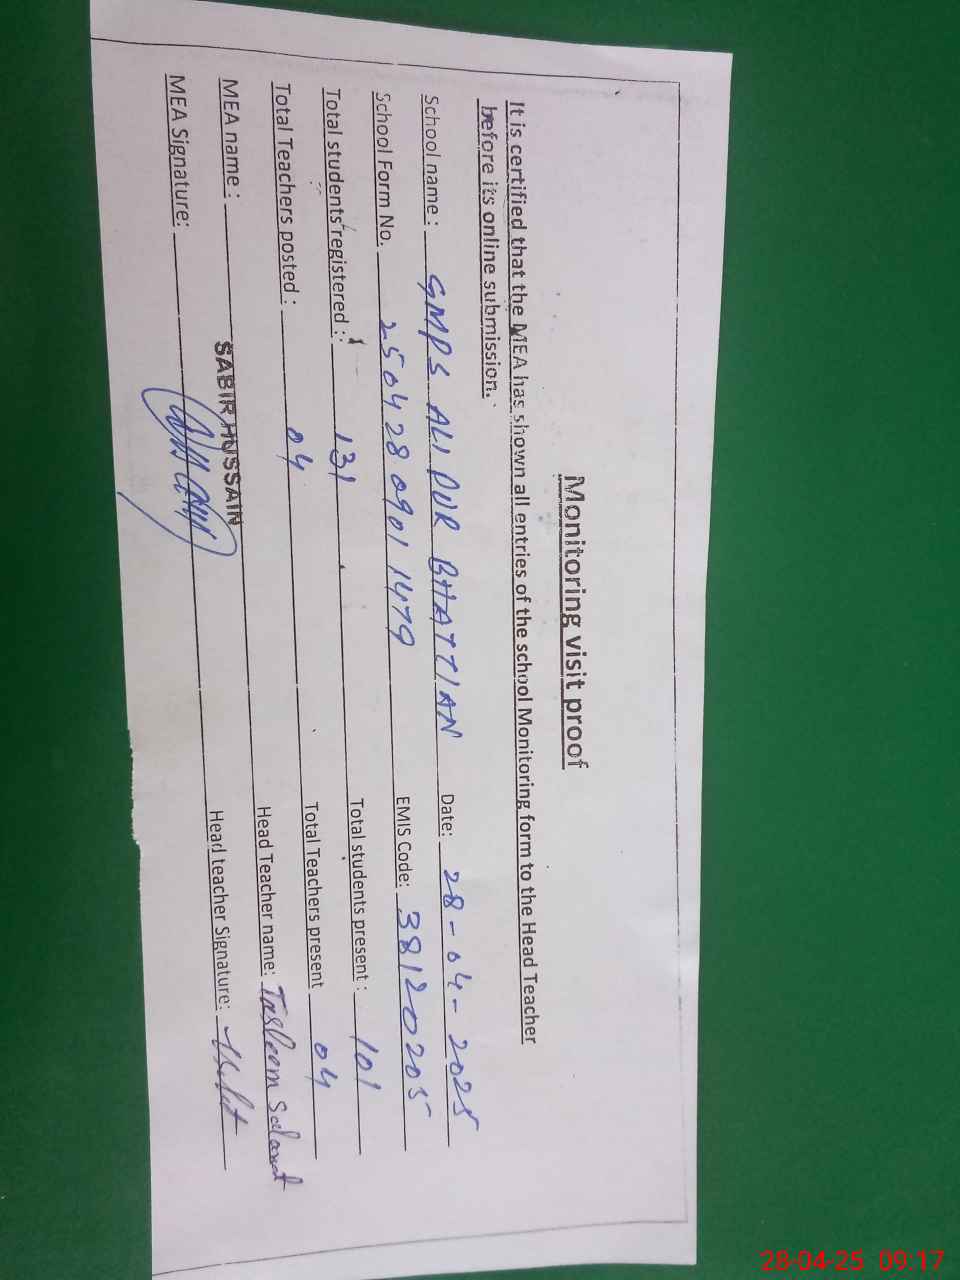 Monitoring visit proof
It is certified that the MEA has shown all entries of the school Monitoring form to the Head Teacher
before its online submission.
School name : GMPS ALI PUR BHATTIAN Date: 28-04-2025
School Form No. 25042809011479 EMIS Code: 38120205
Total students registered : 131 Total students present : 101
Total Teachers posted : 04 Total Teachers present 04
MEA name : SABIR HUSSAIN Head Teacher name: Tasleem Salamat
MEA Signature: Head teacher Signature:
28-04-25 09:17